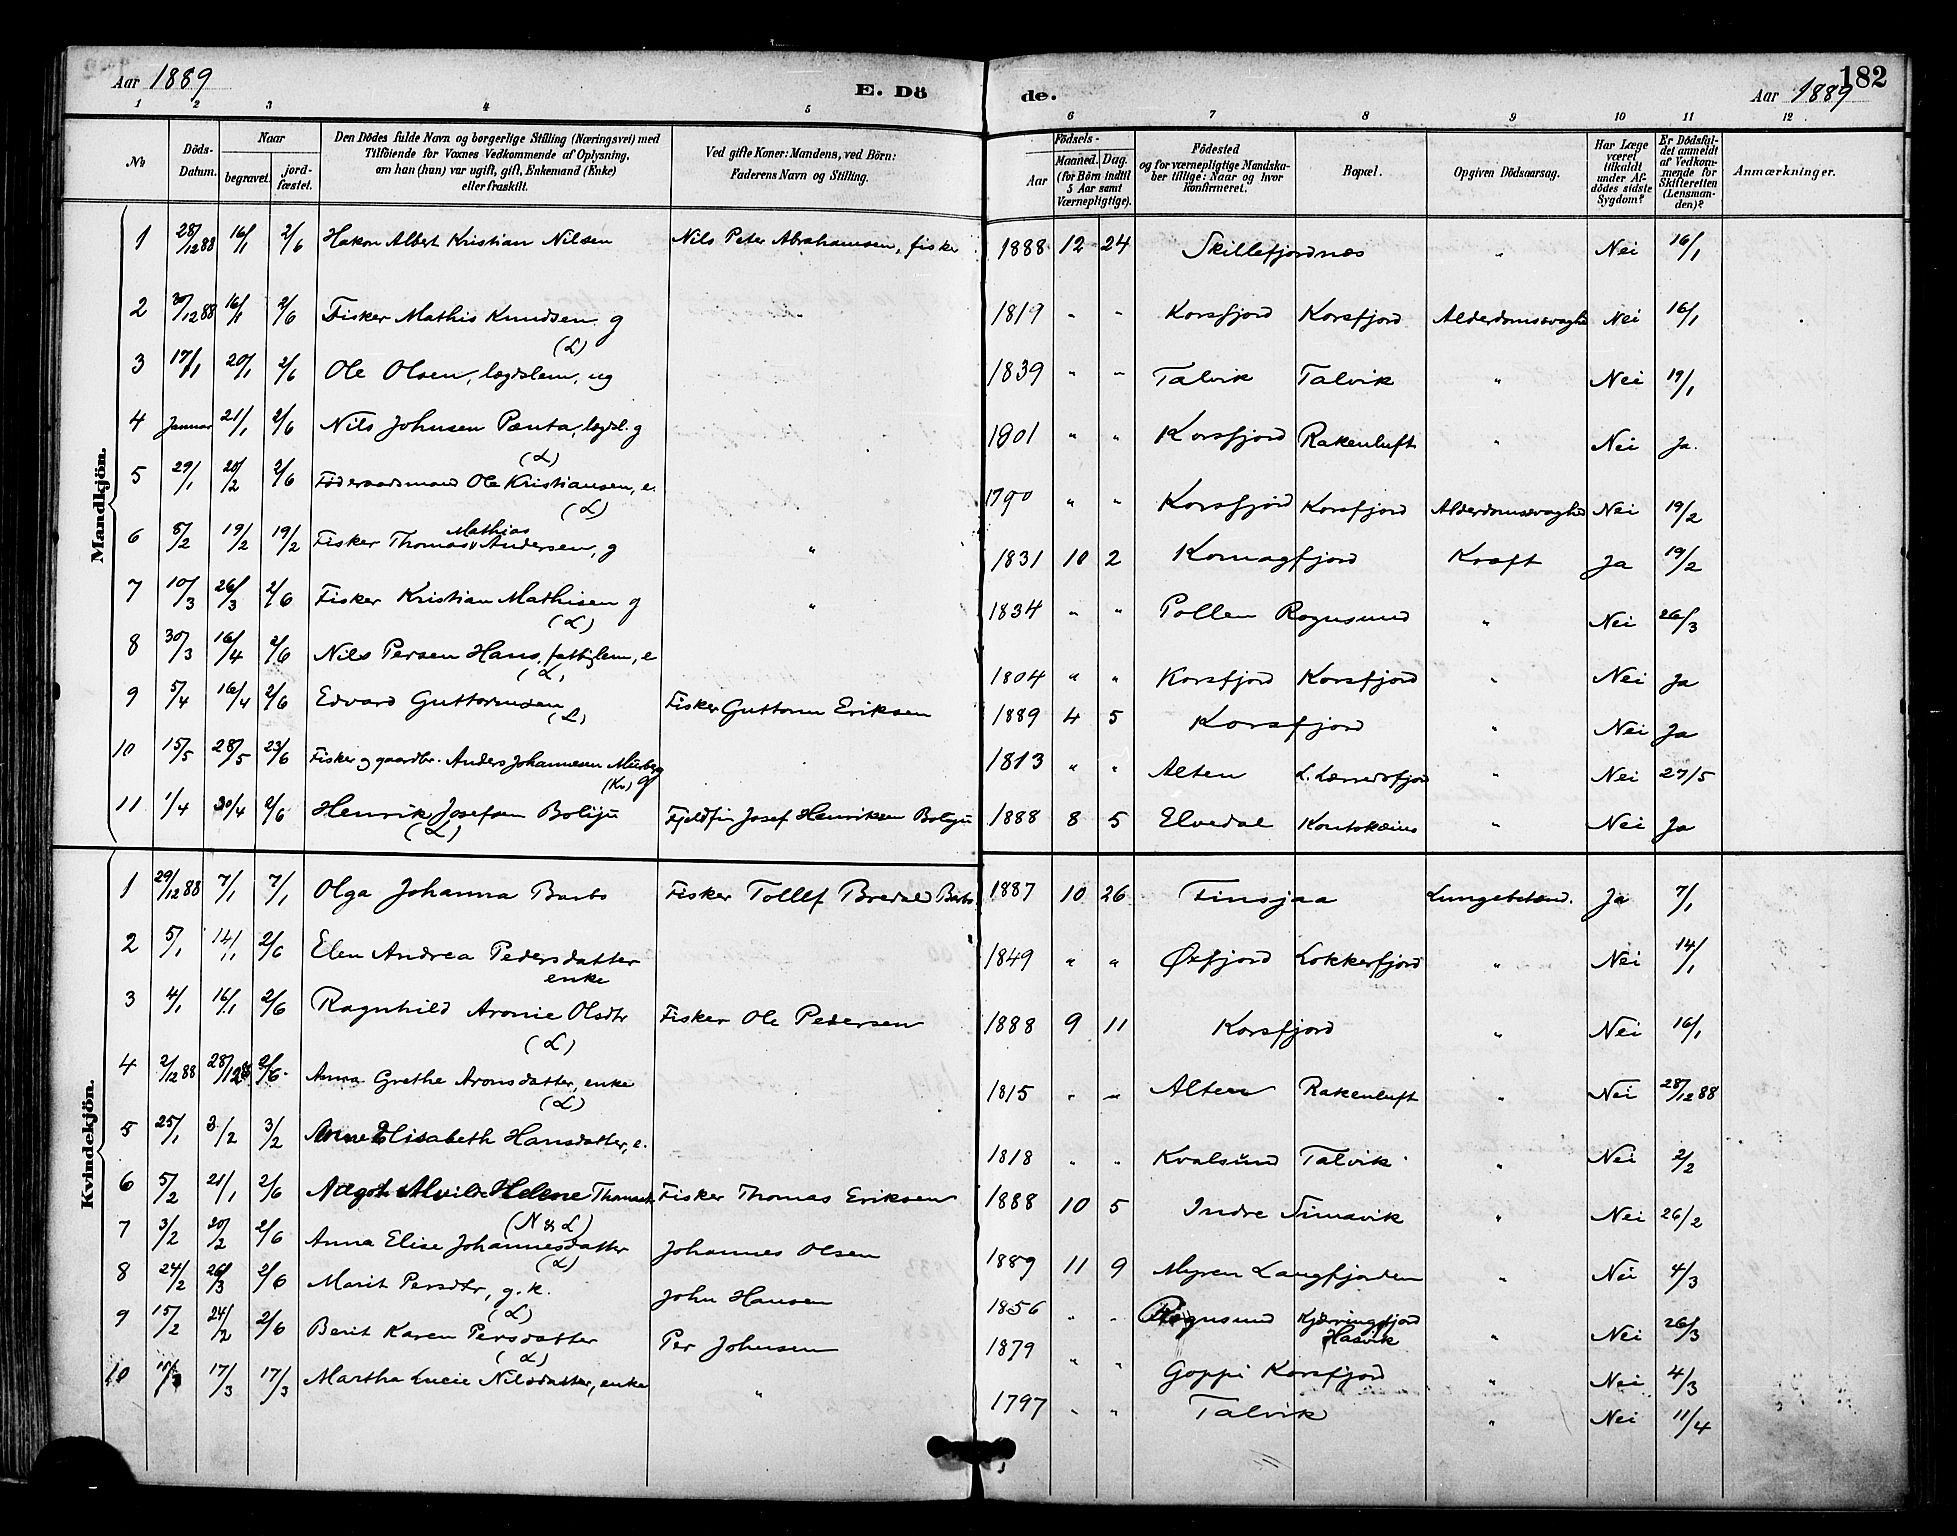 Aar 1889
E. Dö
de.
182
Aar 1889
1 2 3 4 5 6 7 8 9 10 11 12
No
Döds-Datum.
Naar
begravet.
jord-fæstet.
Den Dödes fulde Navn og borgerlige Stilling (Næringsvei) med
Tilföiende for Voxnes Vedkommende af Oplysning,
om han (hun) var ugift, gift, Enkemand (Enke)
eller fraskilt.
Ved gifte Koner: Mandens, ved Börn:
Faderens Navn og Stilling.
Födsels-
Aar
Maaned. Dag.
(for Börn indtil
5 Aar samt
Værnepligtige).
Födested
og for værnepligtige Mandska-
ber tillige: Naar og hvor
konfirmeret.
Bopæl.
Opgiven Dödsaarsag.
Har Læge
været
tilkaldt
under Af-
dödes sidste
Sygdom?
Er Dödsfal-
det anmeldt
af Vedkom-
mende for
Skifteretten
(Lensman-
den)?
Anmærkninger.
Mandkjön.
1 28/12 88 16/1 2/6 Hakon Albert Kristian Nilsen Nils Peter Abrahamsen, fisker 1888 12 24 Skillefjordnæs " Nei 16/1
2 30/12 88 16/1 2/6 Fisker Mathis Knudsen g (L) " 1819 " " Korsfjord Korsfjord Alderdomssvaghed Nei 16/1
3 17/1 20/1 2/6 Ole Olsen, lægdslem, ug 1839 " " Talvik Talvik " Nei 19/1
4 Januar 21/1 2/6 Nils Johnsen Pænta, lægdsl. g (L) 1801 " " Korsfjord Rakenluft " Nei Ja.
5 29/1 20/2 2/6 Föderaadsmand Ole Kristiansen, e. (L) 1790 " " Korsfjord Korsfjord Alderdomssvaghed Nei 19/2
6 5/2 19/2 19/2 Fisker Thomas Mathias Andersen, g " 1831 10 2 Komagfjord Kræft Ja 19/2
7 10/3 26/3 2/6 Fisker Kristian Mathisen g (L) " 1834 " " Pollen Rognsund " Nei 26/3
8 30/3 16/4 2/6 Nils Persen Hans, fattiglem, e (L) 1804 " " Korsfjord Korsfjord " Nei Ja
9 5/4 16/4 2/6 Edvard Guttormsen (L) Fisker Guttorm Eriksen 1889 4 5 Korsfjord " Nei Ja
10 15/5 28/5 23/6 Fisker og gaardbr. Anders Johannesen Murberg (Kv) g 1813 " " Alten L. Lerresfjord " Nei 27/5
11 1/4 30/4 2/6 Henrik Josefsen Boliju (L) Fjeldfin Josef Henriksen Boliju 1888 8 5 Elvedal Koutokæino " Nei Ja
Kvindekjön.
1 29/12 88 7/1 7/1 Olga Johanna Barbo Fisker Tollef Bredal Barbo 1887 10 26 Finsjaa Lungebetænd. Ja 7/1
2 5/1 14/1 2/6 Elen Andrea Pedersdatter enke 1849 " " Øxfjord Lokkerfjord " Nei 14/1
3 4/1 16/1 2/6 Ragnhild Aronie Olsdtr (L) Fisker Ole Pedersen 1888 9 11 Korsfjord " Nei 16/1
4 2/12 88 28/12 88 2/6. Anna Grethe Aronsdatter, enke (L) 1815 " " Alten Rakenluft " Nei 28/12 88
5 25/1 3/2 3/2 Anne Elisabeth Hansdatter, e. 1818 " " Kvalsund Talvik " Nei 2/2
6 5/2 21/1 2/6 Alvilde Helene Fisker Thomas Eriksen (N & L) 1888 10 5 Indre Simavik " Nei 26/2
7 3/2 20/2 2/6 Anna Elise Johannesdatter (L) Johannes Olsen 1889 11 9 Myren Langfjorden " Nei 4/3
8 24/2 26/3 2/6 Marit Persdtr, g. k. (L) John Hansen 1856 " " Rognsund Kjærringfjord Hasvik " Nei 26/3
9 15/2 24/2 2/6 Berit Karen Persdatter (L) Per Johnsen 1879 " " Goppi Korsfjord " Nei 4/3
10 11/3 17/3 17/3 Martha Lucie Nilsdatter, enke " 1797 " " Talvik " Nei 11/4